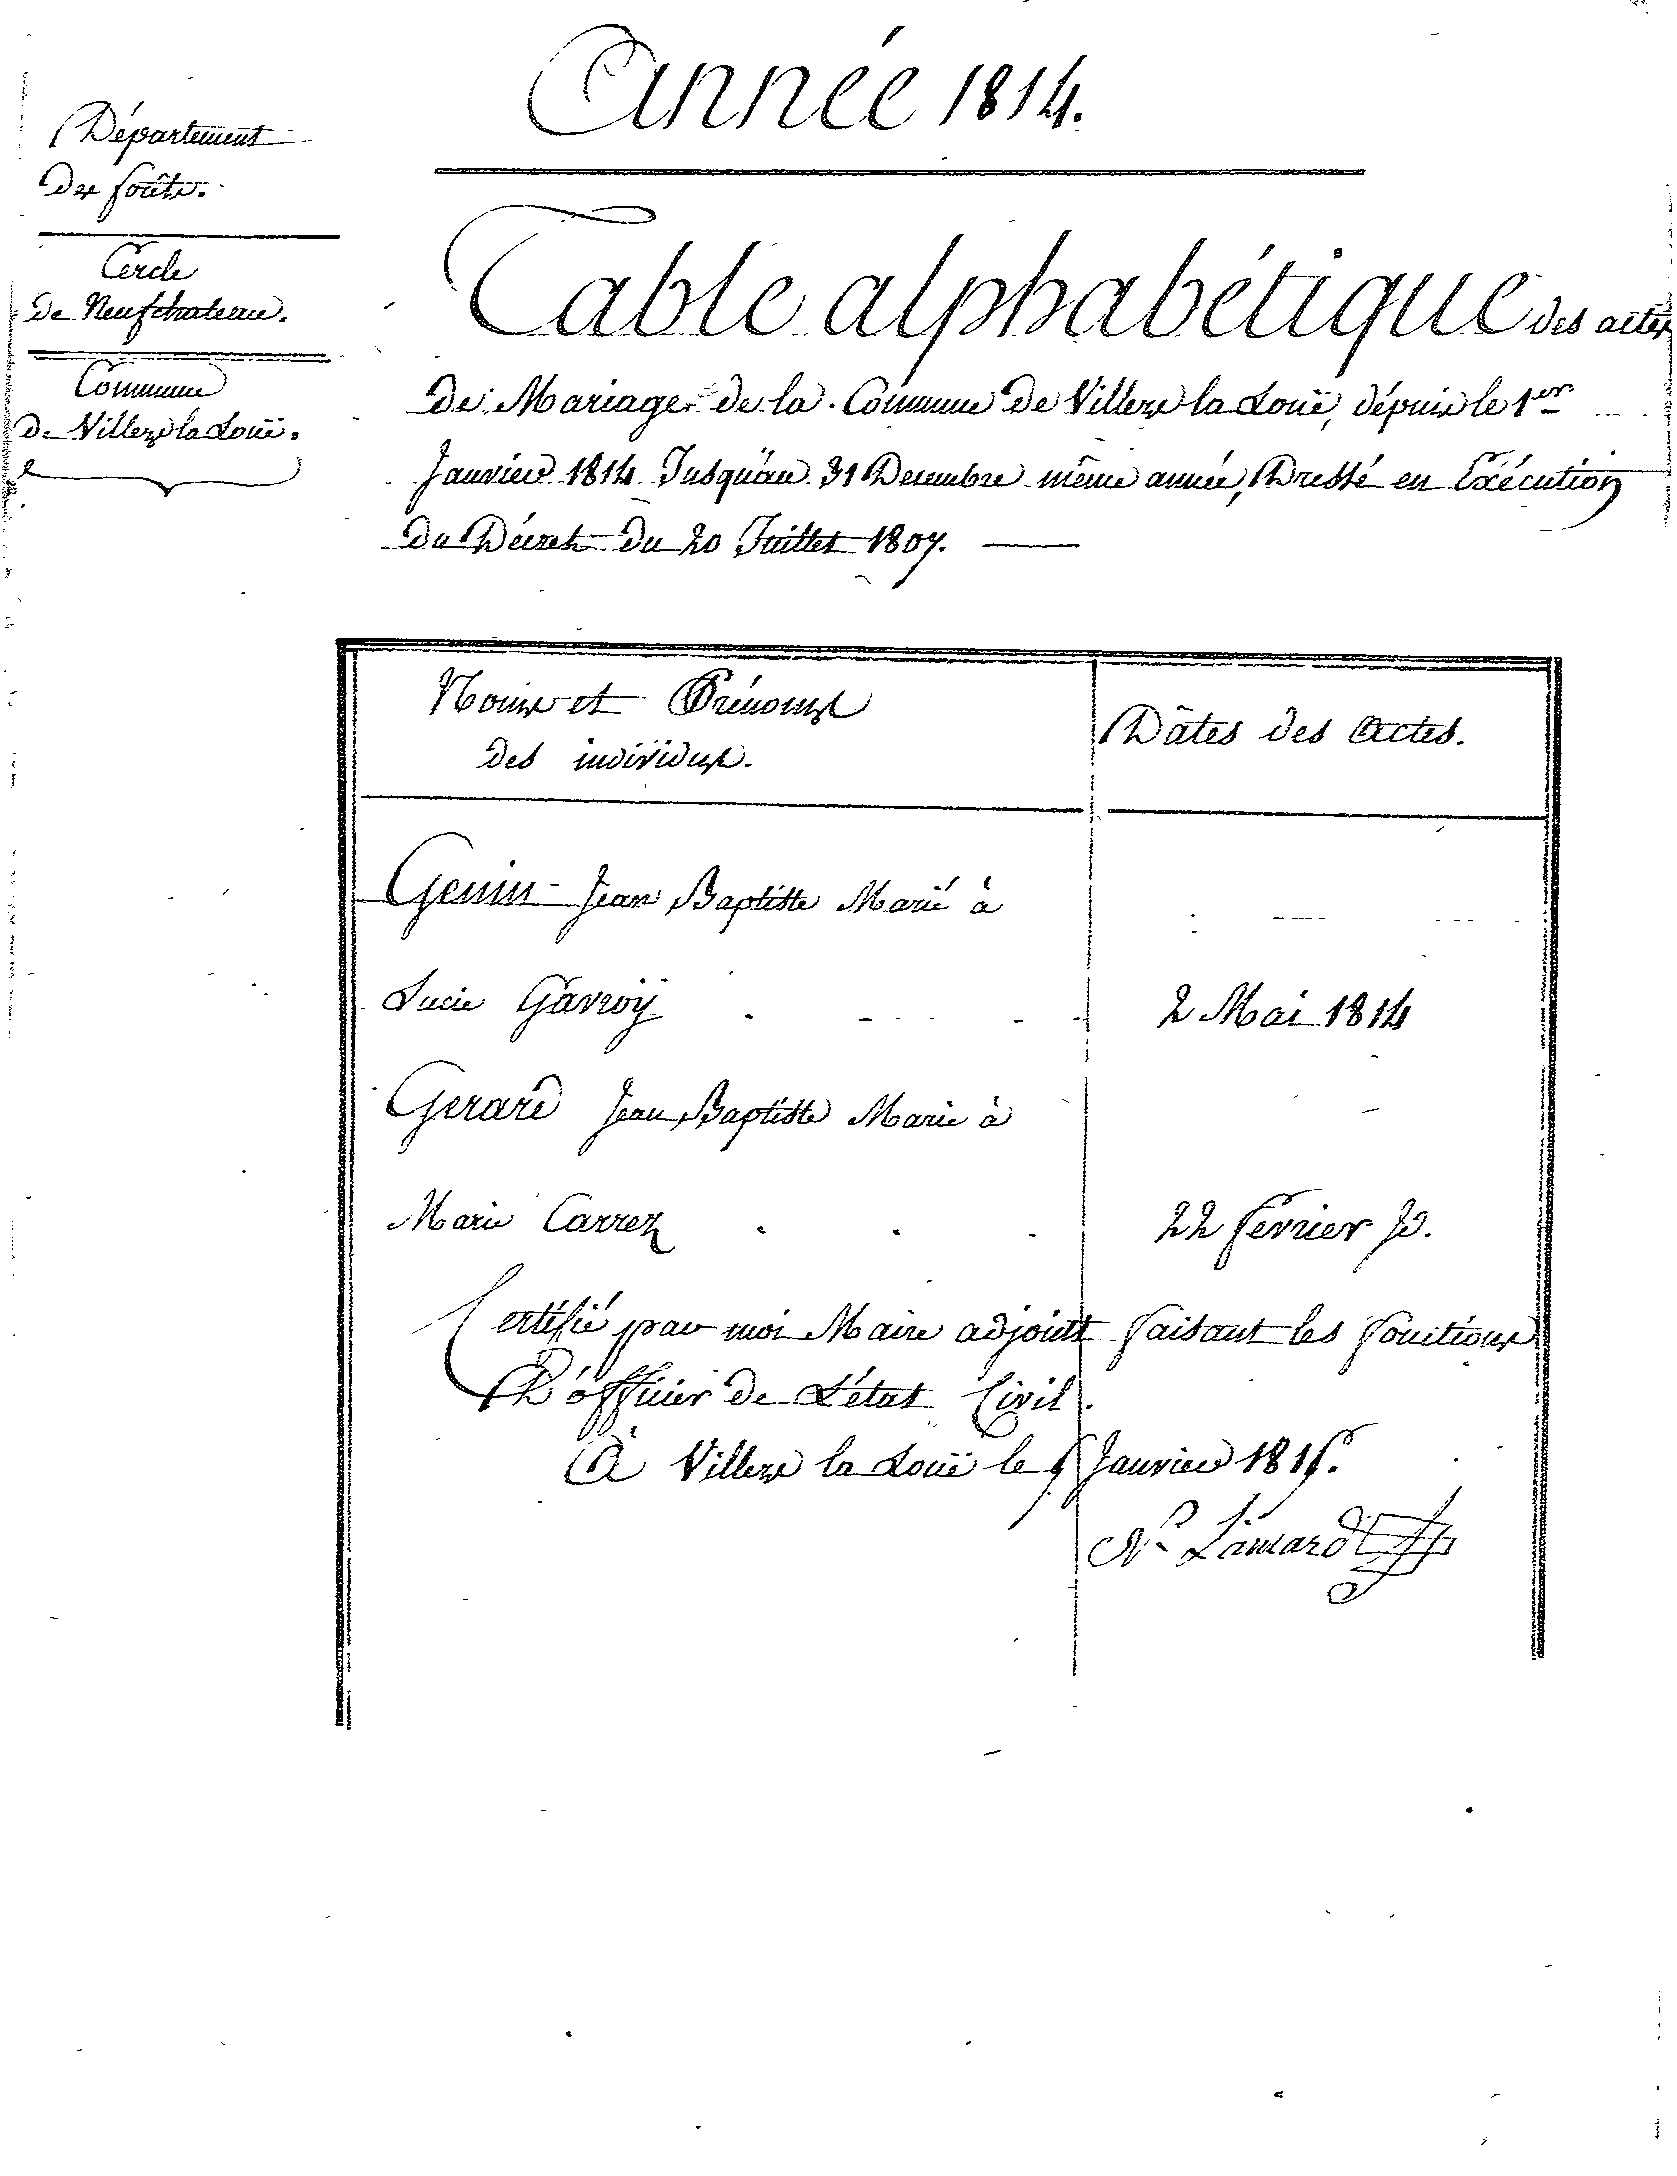 Année 1814.
Département
des forêts.
Cercle
de Neufchateau.
Commune
de Villers la Loüe.
Table alphabétique des actes
de Mariage de la Commune de Villers la Loüe, dépuis le 1er
Janvier 1814 Jusqu'au 31 Decembre même année, Dressé en Exécution
du Décret du 20 Juillet 1807.
Noms et Prénoms
des individus.
Dâtes des Actes.
Genin Jean Baptiste Marié à
Lucie Gavroÿ 2 Mai 1814
Gerard Jean Baptiste Marié à
Marie Carrez 22 fevrier Jd.
Certifié par moi Maire adjoint faisant les fonctions
D'officier de L'état Civil.
A Villers la Loüe le Janvier 1815.